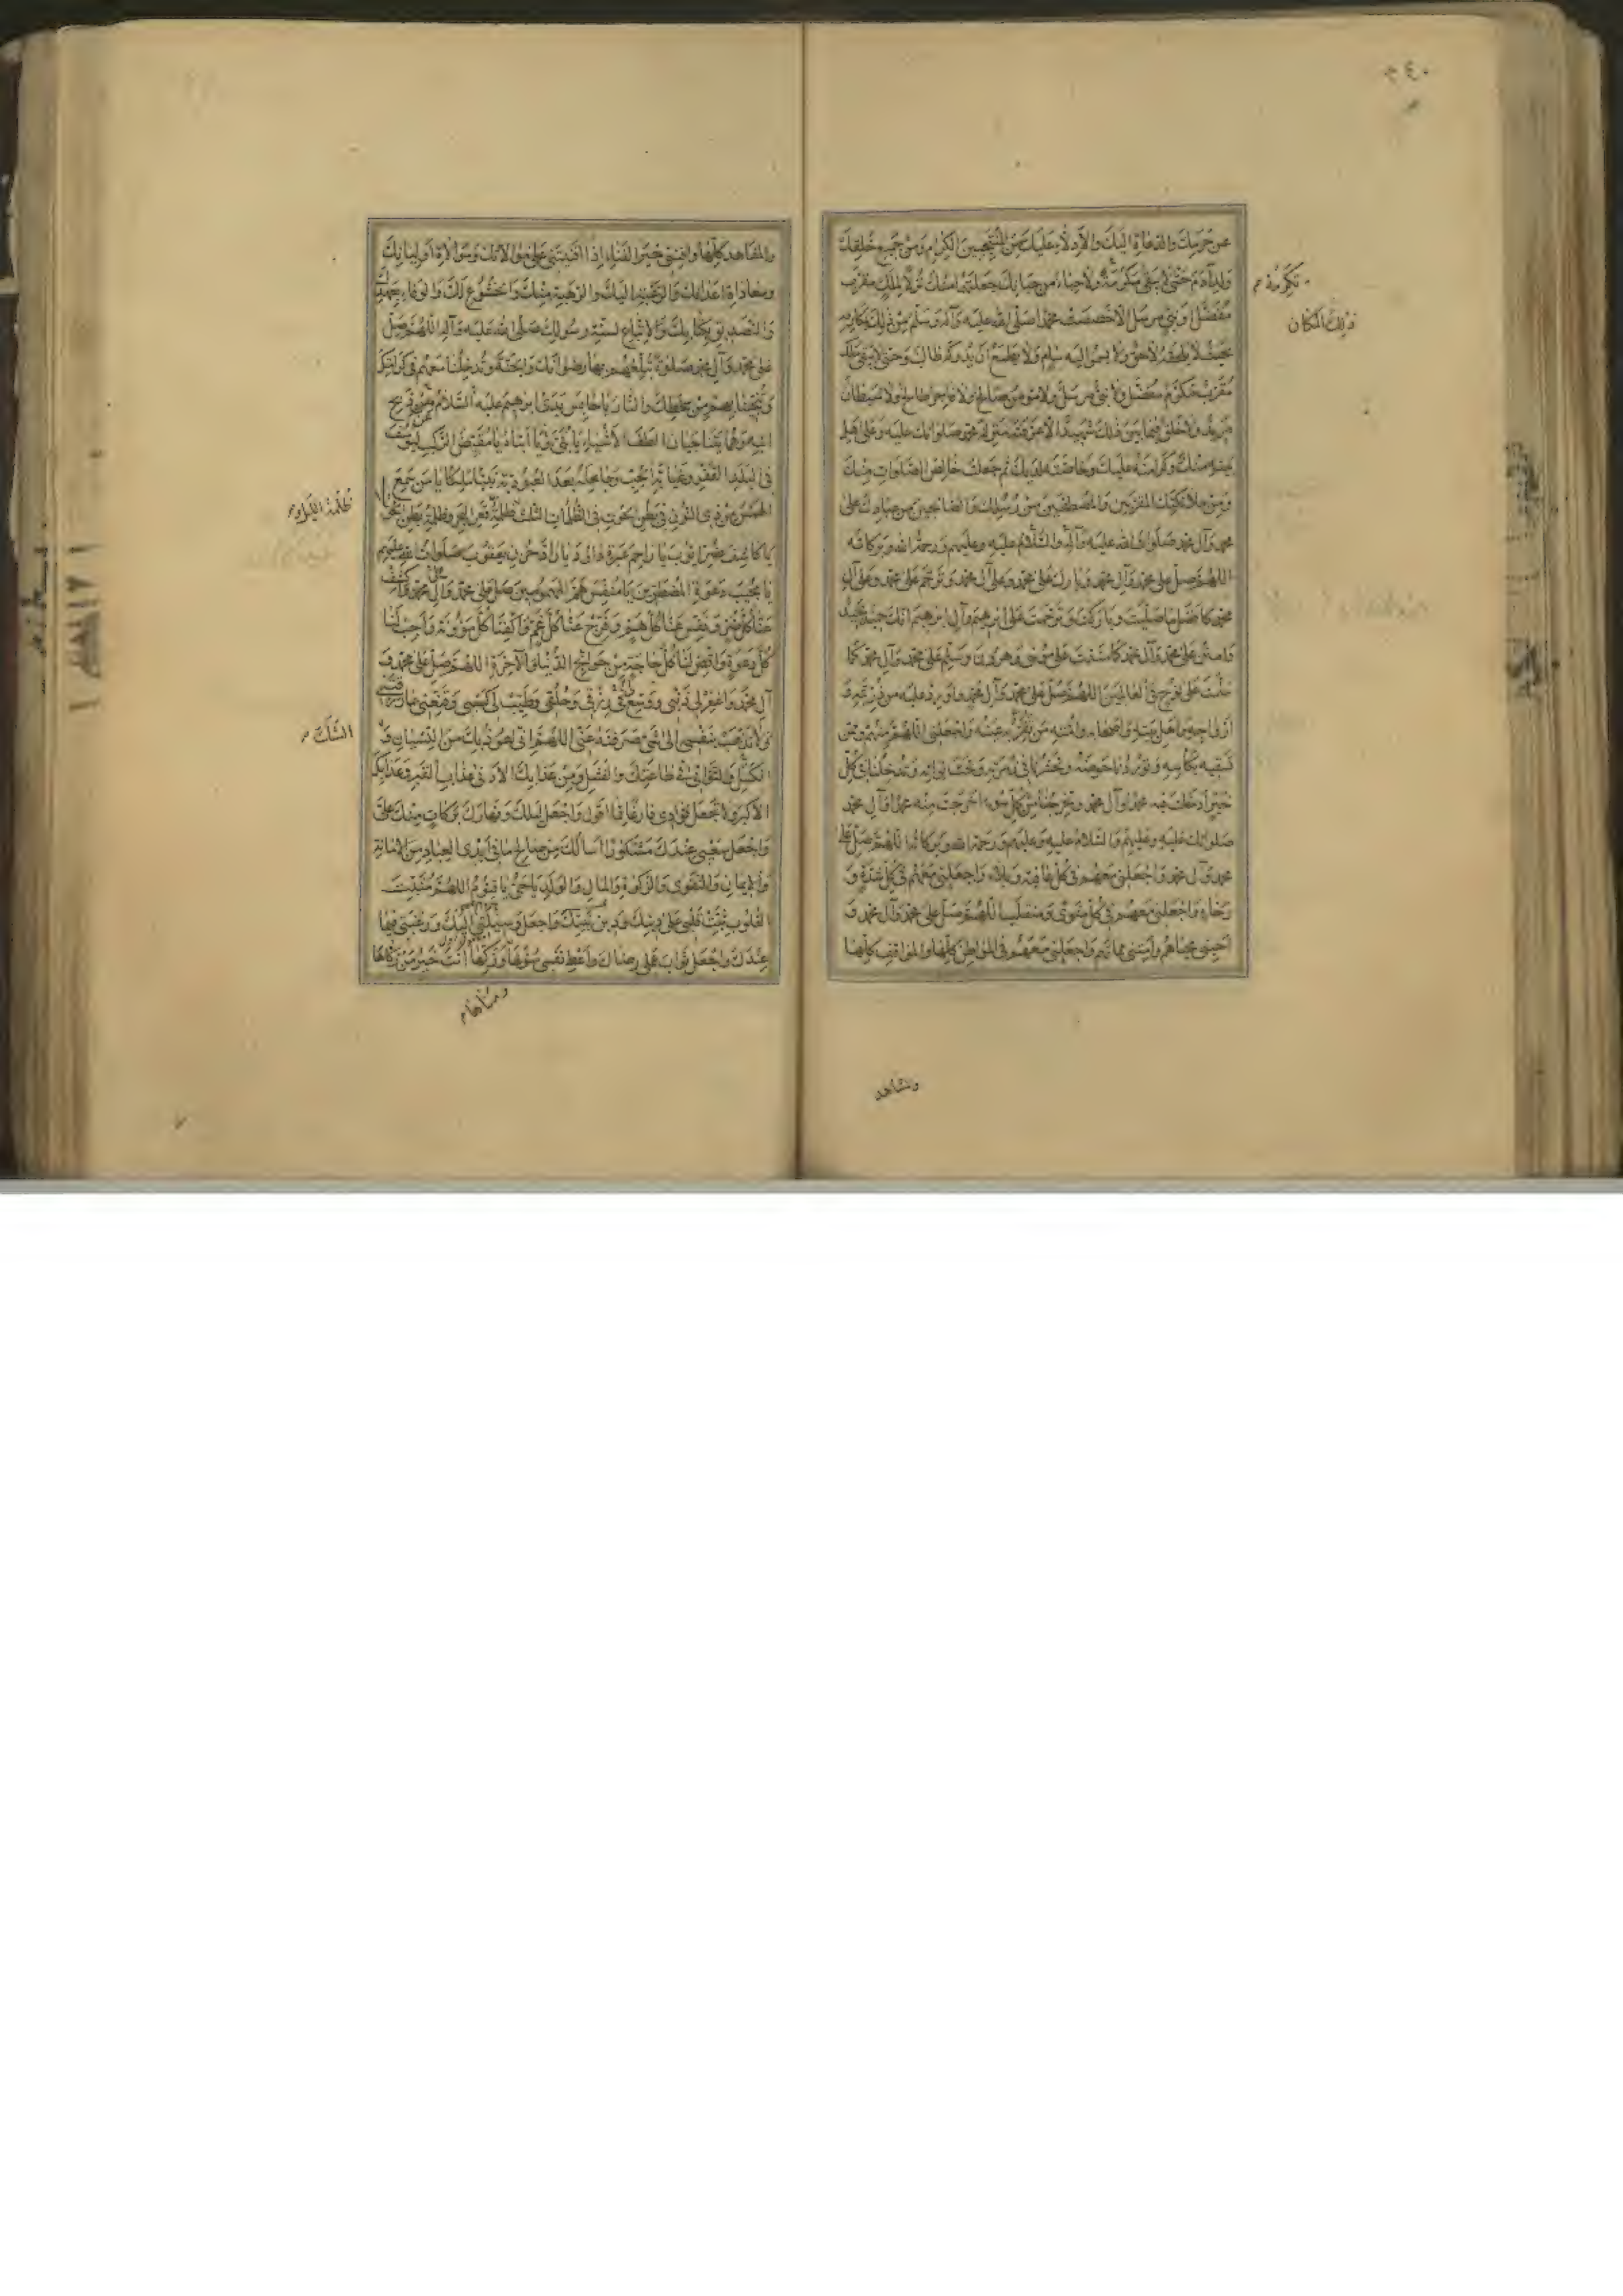 عن حرمك والدعاة اليك والأدلاء عليك من المنتجبين الكرام ومن جميع خلقك
ولد آدم حتى لا يبقى مكرمة ولا حباء من حبائك جعلته منك نزلا لملك مقرب
مفضل او نبي مرسل الا خصصت محمدا صلى الله عليه وآله وسلم من ذلك بمكارمه
بحيث لا يلحقه لاحق ولا يسمو اليه سام ولا يطمع ان يدركه طالب وحتى لا يبقى ملك
مقرب مكرم مفضل ولا نبي مرسل ولا مؤمن صالح ولا فاجر طالح ولا شيطان
مريد ولا خلق فيما بين ذلك شهيد الا عرفته منزلة محمد صلواتك عليه وعلى اهل
بيته منك وكرامته عليك وخاصته لديك ثم جعلت خالص الصلوات منك
ومن ملائكتك المقربين والمصطفين من رسلك والصالحين من عبادك على
محمد وآل محمد صلوات الله عليه وآله والسلام عليه وعليهم ورحمة الله وبركاته
اللهم صل على محمد وآل محمد وبارك على محمد وعلى آل محمد وترحم على محمد وعلى آل
محمد كافضل ما صليت وباركت وترحمت على ابرهيم وآل ابرهيم انك حميد مجيد
وامنن على محمد وآل محمد كما مننت على موسى وهرون وسلم على محمد وآل محمد كما
سلمت على نوح في العالمين اللهم صل على محمد وآل محمد واورد عليه من ذريته و
ازواجه واهل بيته واصحابه وامته من تقر به عينه واجعلني اللهم منهم وممن
تسقيه بكاسه وتوردنا حوضه وتحشرنا في زمرته وتحت لوائه وتدخلنا في كل
خير ادخلت فيه محمدا وآل محمد وتخرجنا من كل سوء اخرجت منه محمدا وآل محمد
صلواتك عليه وعليهم والسلام عليه وعليهم ورحمة الله وبركاته اللهم صل على
محمد وآل محمد واجعلني معهم في كل عافية وبلاء واجعلني معهم في كل شدة و
رخاء واجعلني معهم في كل مثوى ومنقلب اللهم صل على محمد وآل محمد و
احيني محياهم وامتني مماتهم واجعلني معهم في المواطن كلها والمواقف كلها
تكرمة
ذلك المكان
والمشاهد
والمشاهد كلها وافنني خير الفناء اذا افنيتني على موالاتك وموالاة اوليائك
ومعاداة اعدائك والرغبة اليك والرهبة منك والخشوع لك والوفاء بعهدك
والتصديق بكتابك والاتباع لسنة رسولك صلى الله عليه وآله اللهم صل
على محمد وآل محمد صلوة تبلغهم بها رضوانك والجنة وتدخلنا معهم في كرامتك
وتنجينا بهم من سخطك والنار يا حابس يدى ابرهيم عليه السلام عن ذبح
ابنه وهما يتناجيان الطف الاشياء يا بني ويا ابتاه يا مقيض الركب ليوسف
في البلد القفر وغيابة الجب وجاعله بعد العبودية نبيا ملكا يا من سمع
الهمس من ذي النون في بطن الحوت في الظلمات الثلث ظلمة قعر البحر وظلمة بطن الحوت
يا كاشف ضر ايوب يا راحم عبرة داود يا راد حزن يعقوب صلوات الله عليهم
يا مجيب دعوة المضطرين يا منفس هم المهمومين صل على محمد وآل محمد واكشف
عنا كل ضر ونفس عنا كل هم وفرج عنا كل غم واكفنا كل مؤونة واجب لنا
كل دعوة واقض لنا كل حاجة من حوائج الدنيا والآخرة اللهم صل على محمد و
آل محمد واغفر لي ذنبي ووسع لي في رزقي وخلقي وطيب لي كسبي وقنعني بما رزقتني
ولا تذهب بنفسي الى شيء صرفته عني اللهم اني اعوذ بك من النسيان و
الكسل والتواني في طاعتك والفشل ومن عذابك الادنى عذاب القبر وعذابك
الاكبر ولا تجعل فؤادي فارغا مما اقول واجعل ليلك ونهارك بركات منك علي
واجعل سعيي عندك مشكورا اسألك من صالح ما في ايدي العباد من الامانة
والايمان والتقوى والزكوة والمال والولد يا حي يا قيوم اللهم مثبت
القلوب ثبت قلبي على دينك ودين نبيك واجعل وسيلتي اليك ورغبتي فيما
عندك واجعل ثواب عملي رضاك واعط نفسي سؤلها وزكها انت خير من زكاها
ظلمة الليل
الشك